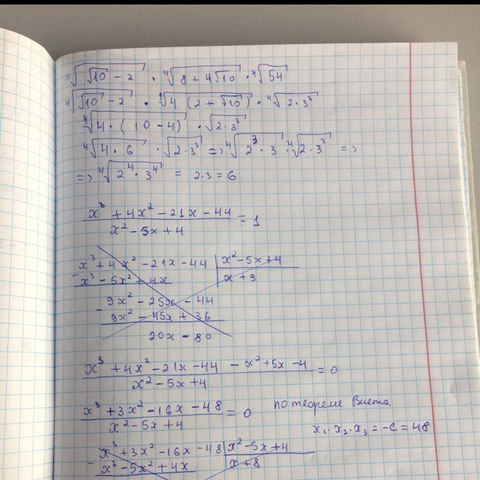 ⁴√(√10 − 2) · ⁴√(8 + 4√10) · ⁴√54
⁴√(√10 − 2) · ⁴√(4 (2 + √10)) · ⁴√(2·3³)
⁴√(4 · (10 − 4)) · √(2·3³)
⁴√(4 · 6) · √(2·3³) => ⁴√(2³ · 3) · ⁴√(2·3³) =>
=> ⁴√(2⁴ · 3⁴) = 2·3 = 6
(x³ + 4x² − 21x − 44) / (x² − 5x + 4) = 1
− x³ + 4x² − 21x − 44 | x² − 5x + 4
x³ − 5x² + 4x | x + 9
− 9x² − 25x − 44
9x² − 45x + 36
20x − 80
(x³ + 4x² − 21x − 44 − x² + 5x − 4) / (x² − 5x + 4) = 0
(x³ + 3x² − 16x − 48) / (x² − 5x + 4) = 0
по теореме Виета
x₁ · x₂ · x₃ = −c = 48
− x³ + 3x² − 16x − 48 | x² − 5x + 4
x³ − 5x² + 4x | x + 8